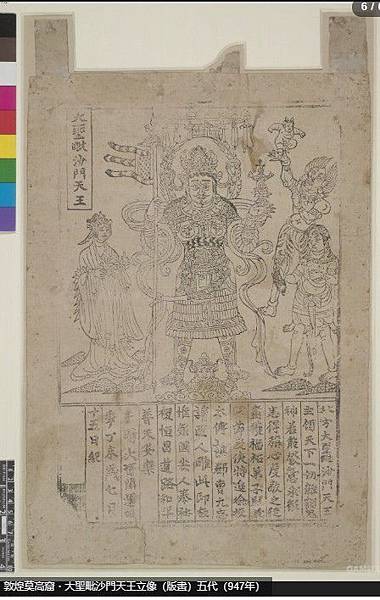 6 /
大聖毗沙門天王
北方大聖毗沙門天王
主領天下一切雜類鬼
神若能發意求願
悉得稱心虔敬之徒
盡獲福祐弟子歸義
軍節度使特進檢校
太傅譙郡曹元忠
請匠人雕此印板
惟願國安人泰社
稷恒昌道路和平
普天安樂
時大晉開運四
年丁未歲七月
十五日紀
敦煌莫高窟·大聖毗沙門天王立像（版畫）五代（947年）